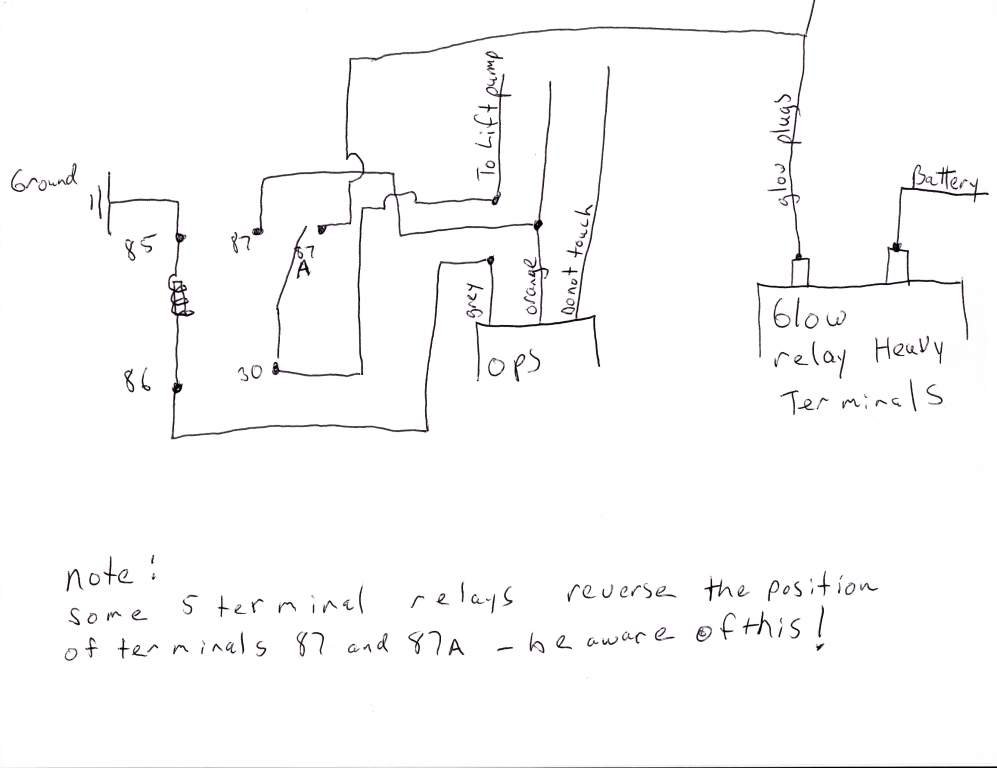 To Lift pump
glow plugs
Battery
Ground
85
87
87
A
grey
orange
Do not touch
86
30
OPS
Glow
relay Heavy
Terminals
note!
some 5 terminal relays reverse the position
of terminals 87 and 87A - be aware of this!